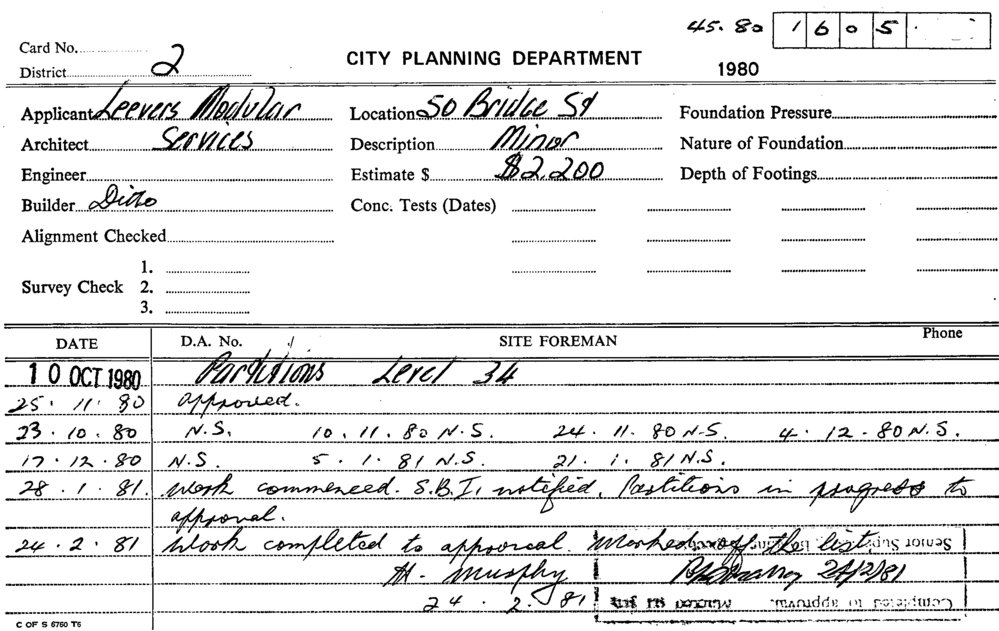 45.80 1605
Card No.
District 2
CITY PLANNING DEPARTMENT
1980
Applicant Leevers Modular
Location 50 Bridge St
Foundation Pressure
Architect Services
Description Minor
Nature of Foundation
Engineer
Estimate $ $2,200
Depth of Footings
Builder Ditto
Conc. Tests (Dates)
Alignment Checked
Survey Check 1. 2. 3.
DATE D.A. No. SITE FOREMAN Phone
10 OCT 1980 Partitions Level 34
25.11.80 approved.
23.10.80 N.S. 10.11.80 N.S. 24.11.80 N.S. 4.12.80 N.S.
17.12.80 N.S. 5.1.81 N.S. 21.1.81 N.S.
28.1.81. Work commenced. S.B.I. notified. Partitions in progress to
approval.
24.2.81 Work completed to approval. Marked off the list.
Senior
H. Murphy 24/2/81
24.2.81 Completed to approval
C OF S 6760 T6